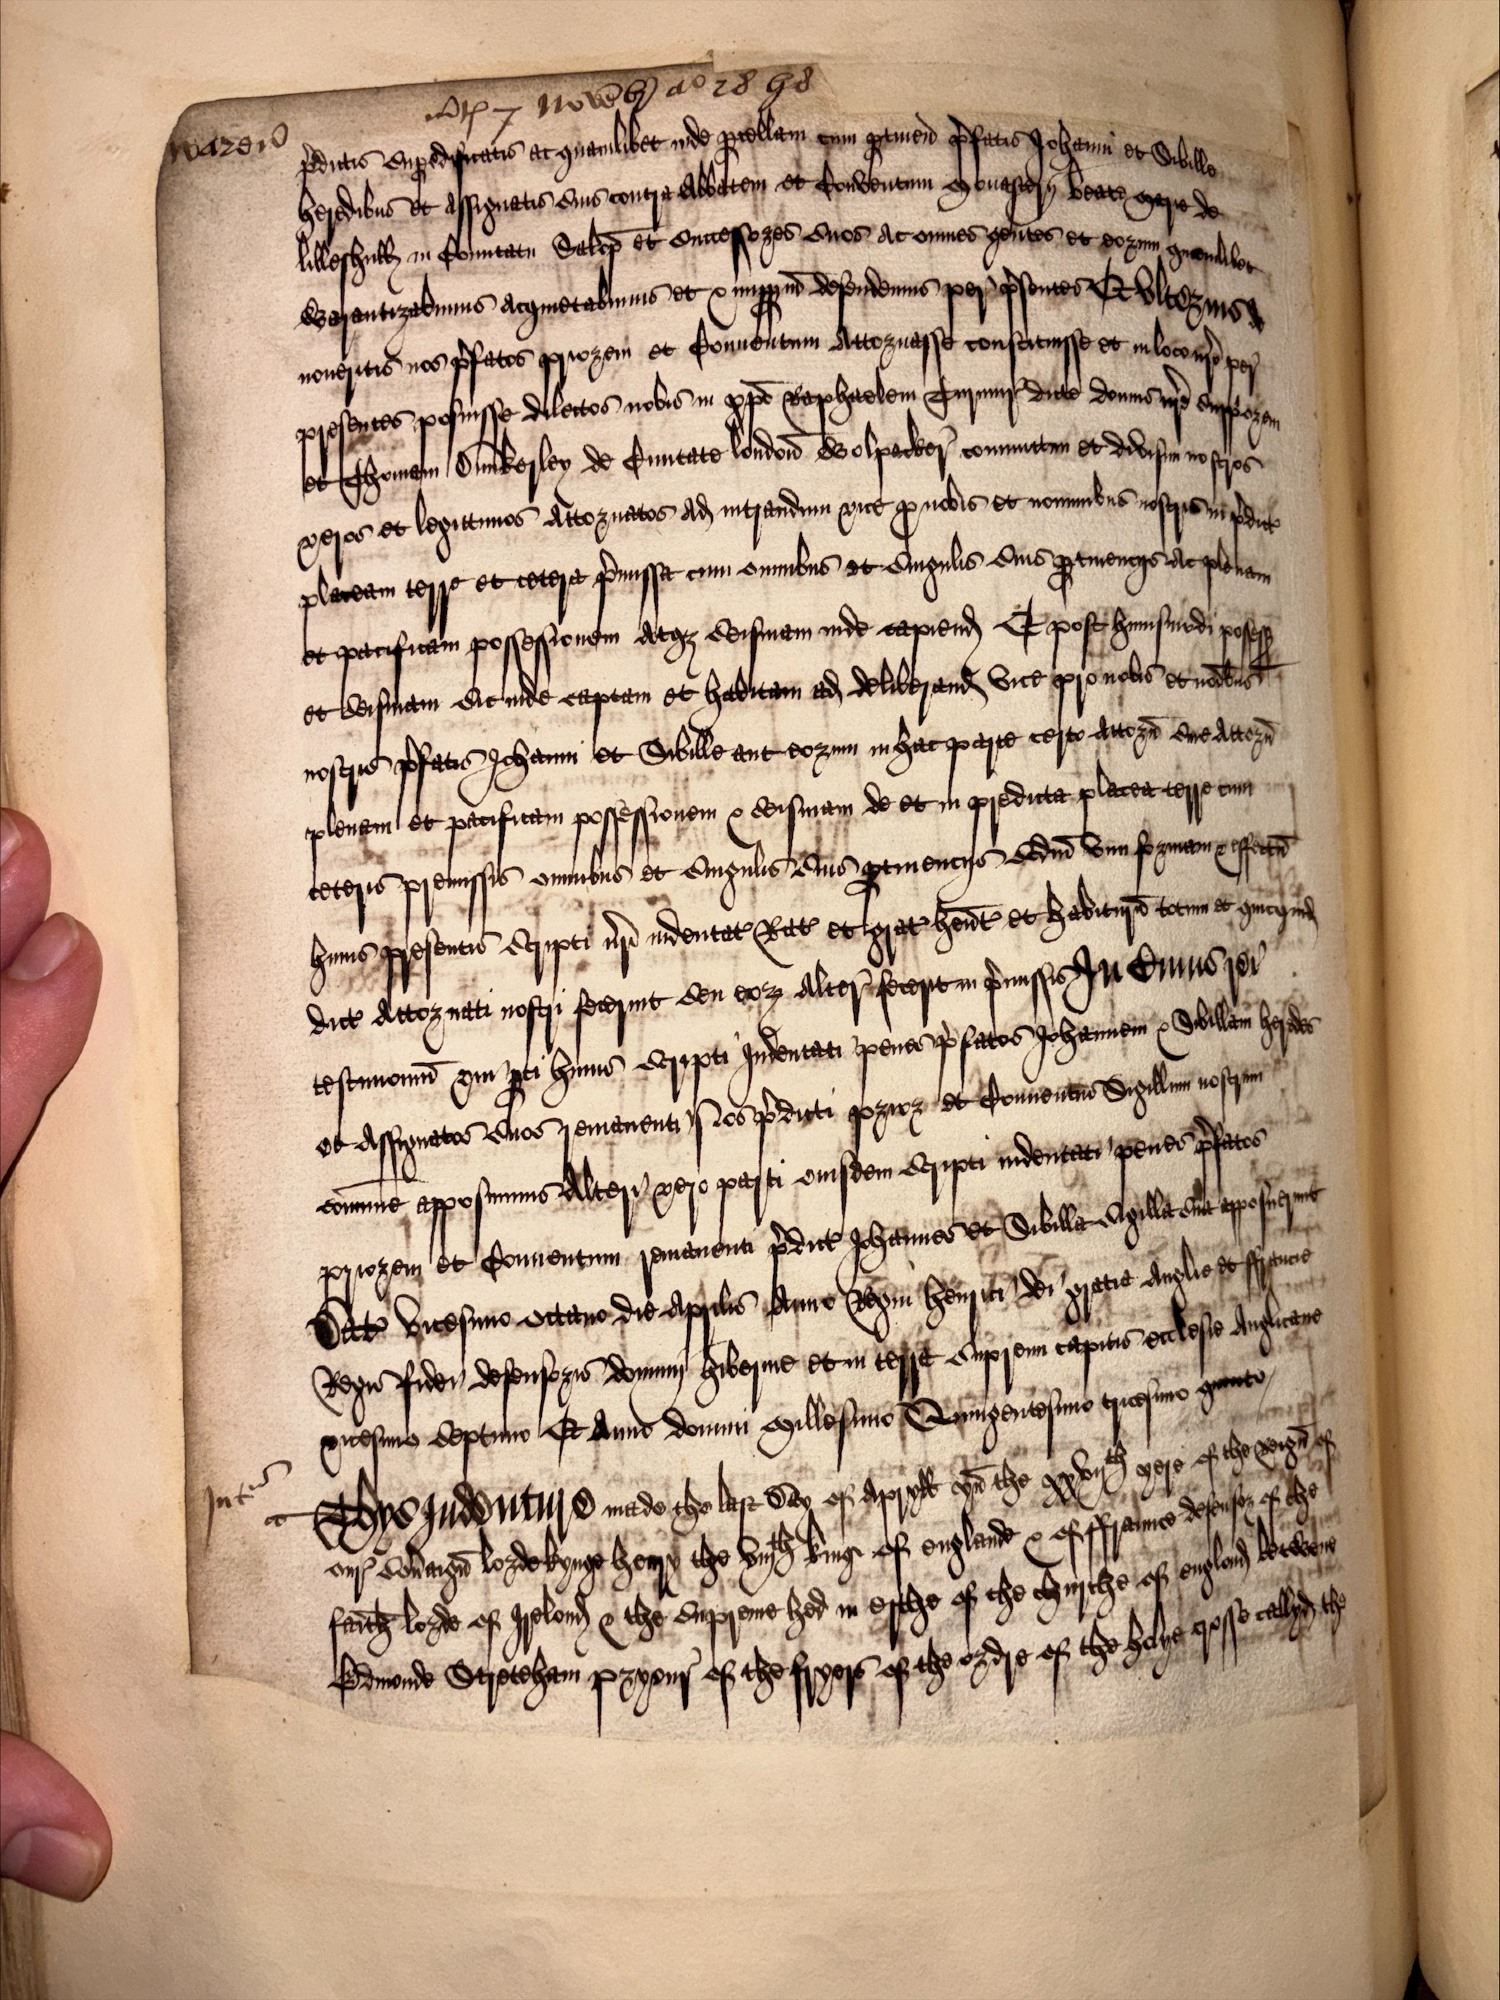 7 Novēb ao 28 H8
p̄dictis supedificatis ac quamlibet inde p̱cellam cum p̱tinen̄ p̄fatis Johanni et Sibille
heredibus et assignatis suis contra Abbatem et Conventum Monasterij beate Marie de
lilleshull in Comitatu Salop̄ et successores suos ac omnes gentes et eorum quemlibet
Warantizabimus acquietabimus et imp̱p̱m̄ defendemus per p̄sentes Et Ulterius
noveritis nos p̄fatos priorem et Conventum Attornasse constituisse et in loco nr̄o per
presentes posuisse dilectos nobis in xp̄o Raphaelem dicte domus nr̄e supp̄orem
et Thomam de Civitate london̄ Wolpacker coniunctim et divisim nostros
veros et legittimos Attornatos ad intrandum vice p̱ nobis et nominibus nostris in p̄dict
placeam terre et cetera p̄missa cum omnibus et singulis suis p̱tinencijs ac plenam
et pacificam possessionem atqȝ seisinam inde capiend Et post huiusmodi possess
et seisinam sic inde captam et habitam ad deliberand vice pro nobis et nōībus
nostris p̄fatis Johanni et Sibille aut eorum in hac parte certo attorn̄ sive Attorn̄
plenam et pacificam possessionem & seisinam de et in predicta placea terre cum
ceteris premissis omnibus et singulis suis p̱tinencijs scdm̄ vim formam & effectū
huius presentis scripti nr̄i indentat Rat et grat hen̄t et habitur̄ totum et quicquid
dict Attornati nostri fecerint seu eorȝ alter fecerit in p̄missis In Cuius rei
testimoniū uni p̱ti huius scripti Indentati penes p̄fatos Johannem & Sibillam heredes
et Assignatos suos remanenti Nos p̄dicti prior et Conventus Sigillum nostrum
com̄une apposuimus Alteri vero parti eiusdem scripti indentati penes p̄fatos
priorem et Conventum remanenti p̄dict Johannes et Sibilla sigilla sua apposuerunt
Dat vicesimo octavo die Aprilis Anno Regni henrici dei gratia Anglie et ffrancie
Regis fidei defensoris domini hibernie et in terra supremi capitis ecclesie Anglicane
vicesimo septimo Et Anno domini Millesimo Quingentesimo tricesimo quinto
Thys Indenture made the last Day of Apryll yn̄ the xxvijth yere of the reign̄ of
our sov̄aign̄ lorde kynge henry the viijth kinge of englande & of ffraunce defensor of the
faith lorde of Irelond & the supreme hed in erthe of the churche of englond betwene
Edmonde Streteham pryour of the fryers of the ordre of the holye crosse callyd the